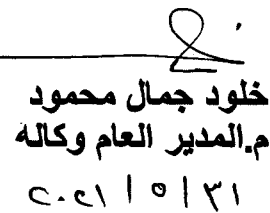 خلود جمال محمود
م.المدير العام وكالة
٢٠٢١ / ٥ / ٣١